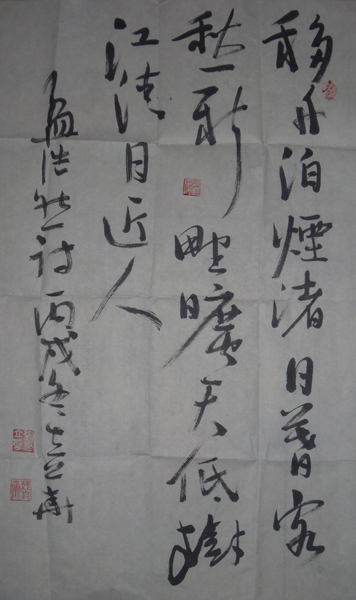 移舟泊煙渚日暮客
愁新野曠天低樹
江清月近人
孟浩然诗丙戌冬